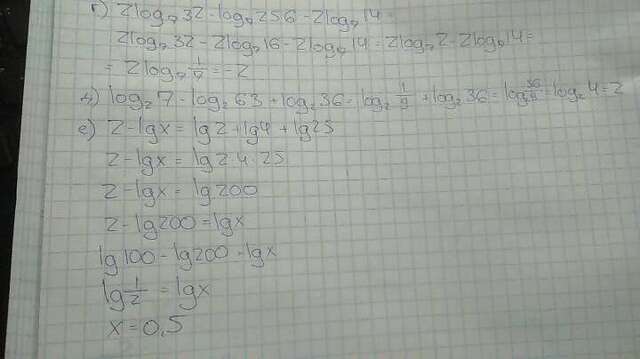 г) 2log₇32 - log₇256 - 2log₇14
2log₇32 - 2log₇16 - 2log₇14 = 2log₇2 - 2log₇14 =
= 2log₇ 1/7 = -2
д) log₂7 - log₂63 + log₂36 = log₂ 1/9 + log₂36 = log 36/9 = log₂4 = 2
е) 2 - lgx = lg2 + lg4 + lg25
2 - lgx = lg2·4·25
2 - lgx = lg200
2 - lg200 = lgx
lg100 - lg200 = lgx
lg 1/2 = lgx
x = 0,5